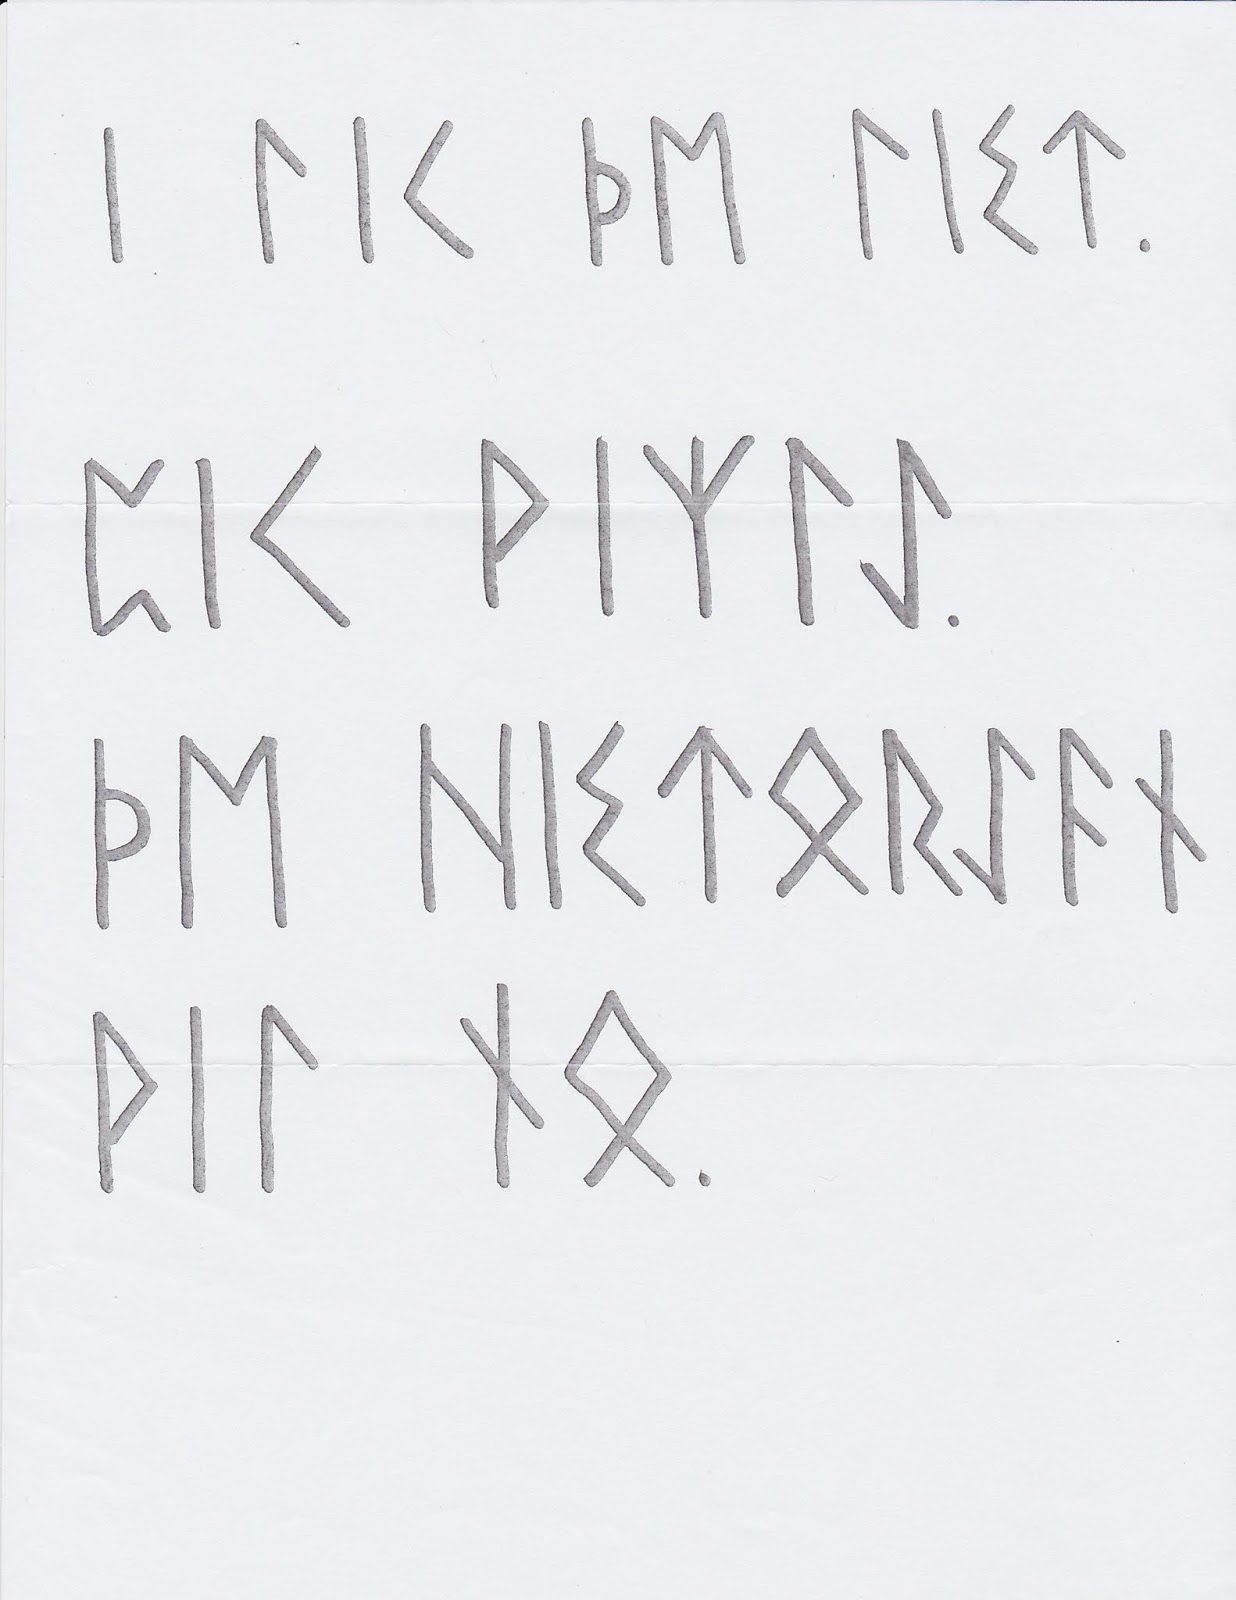 ᛁ ᛚᛁᚲ ᚦᛖ ᛚᛁᛊᛏ.
ᛈᛁᚲ ᚹᛁᛉᛚᛇ.
ᚦᛖ ᚺᛁᛊᛏᛟᚱᛇᚨᚾ
ᚹᛁᛚ ᚾᛟ.